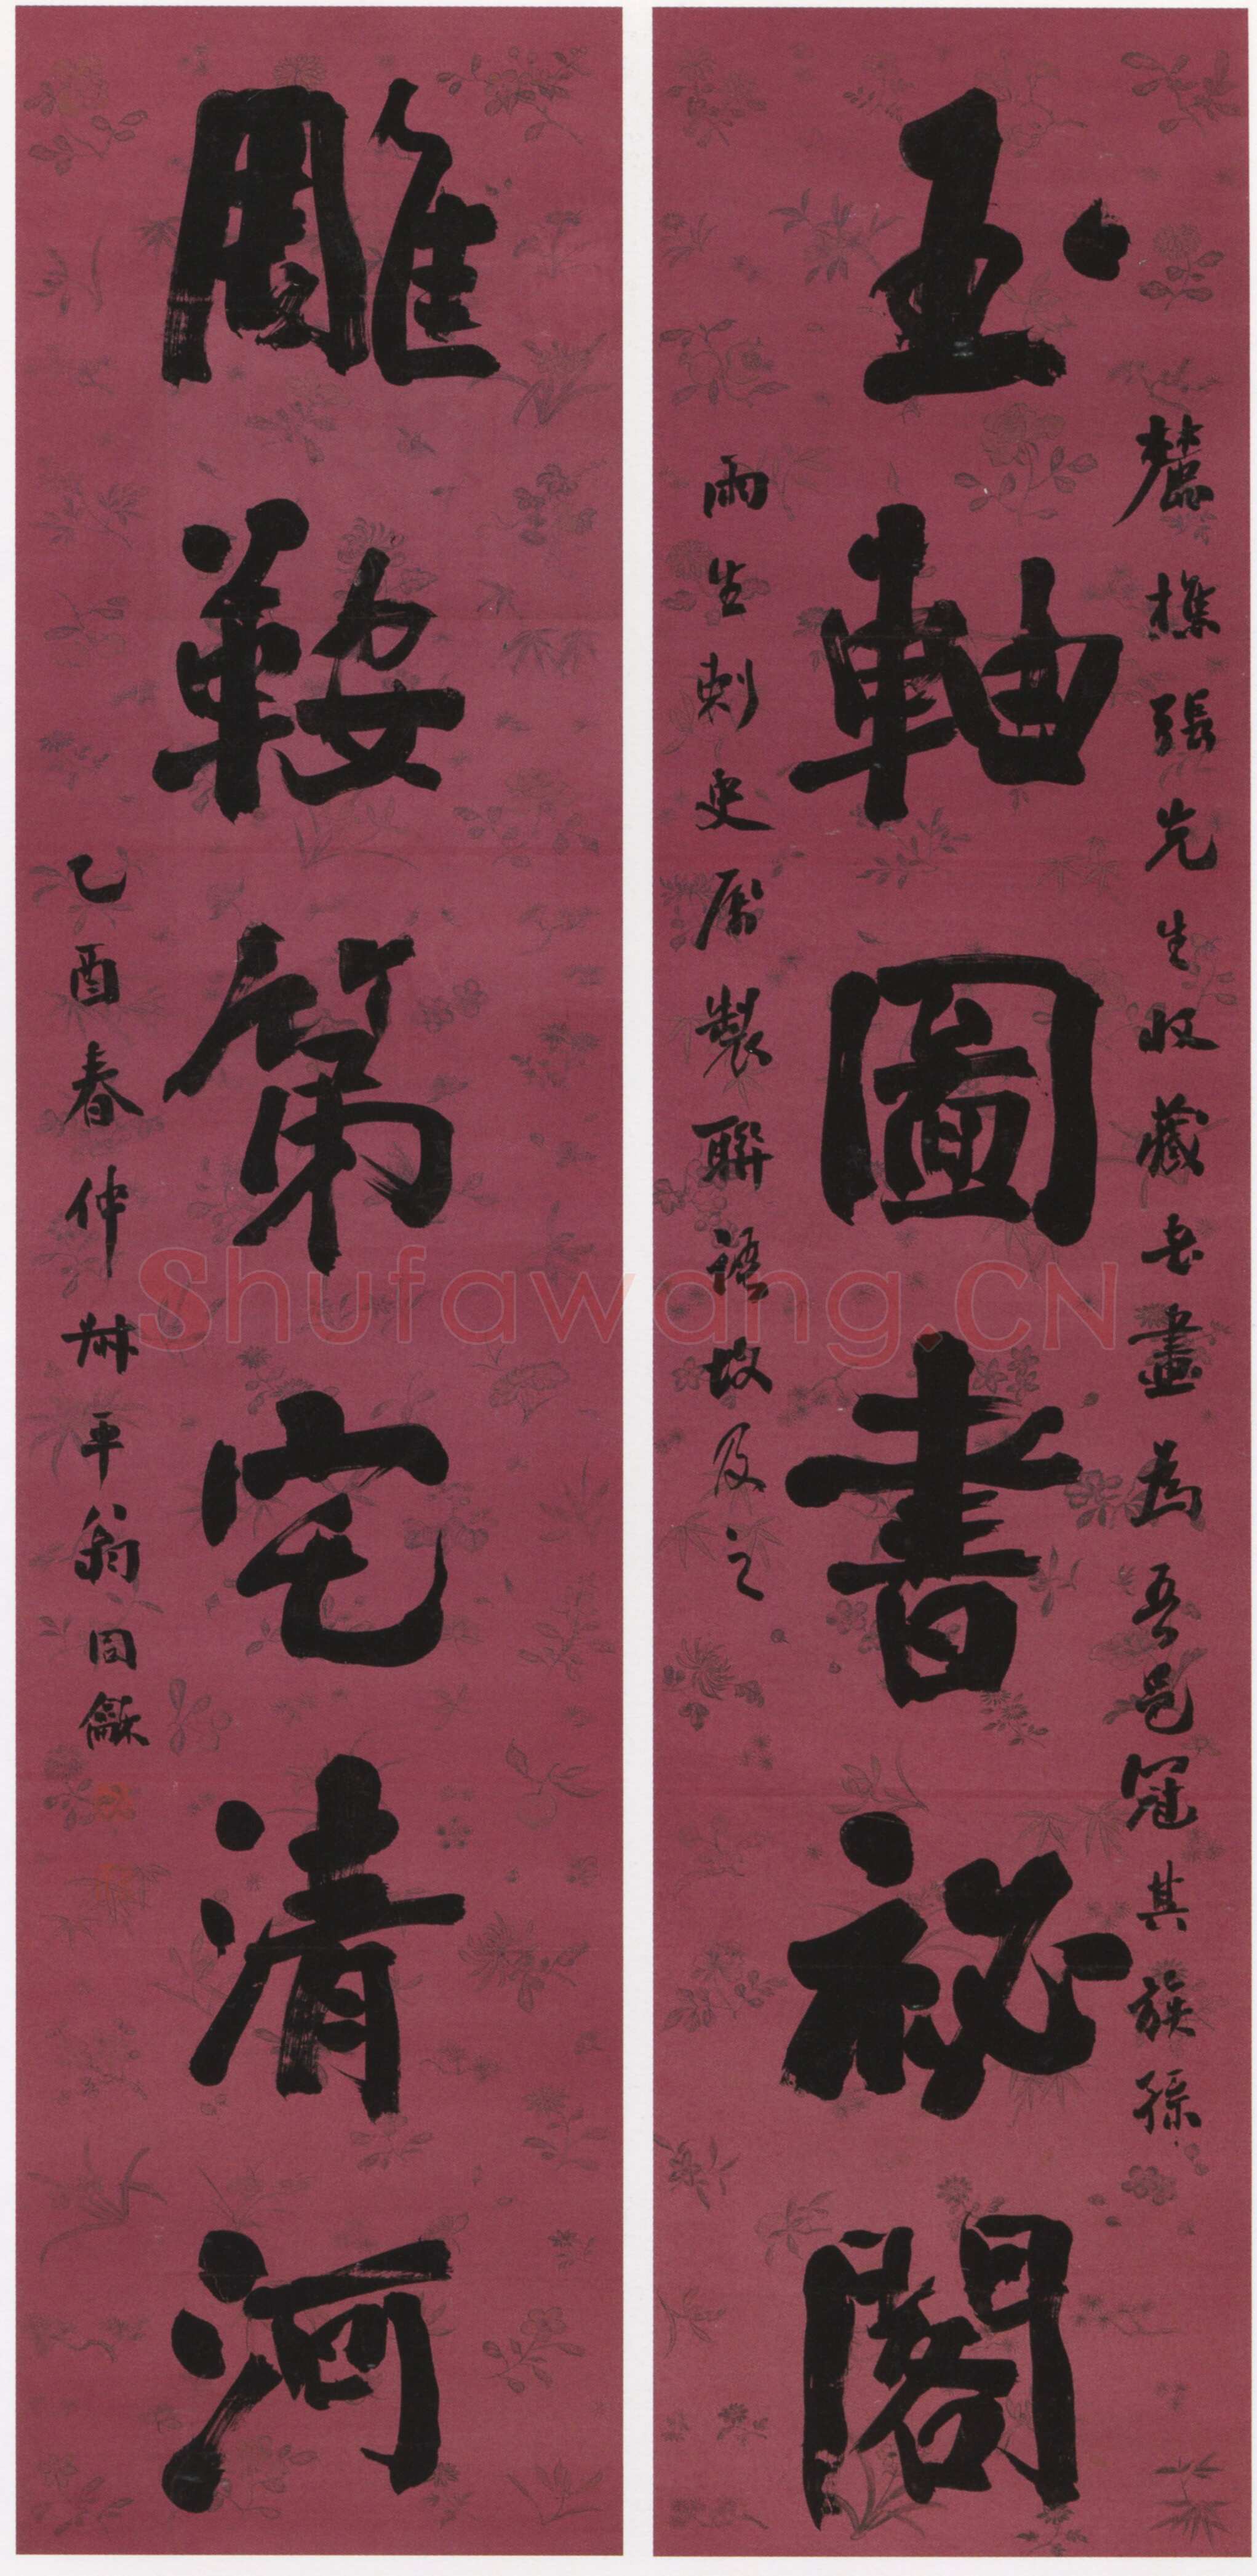 麓樵張先生收藏書畫為吾邑冠其族孫
玉軸圖書祕閣
雨生刺史屬製聯語故及之
雕鞍第宅清河
乙酉春仲叔平翁同龢
Shufawang.CN